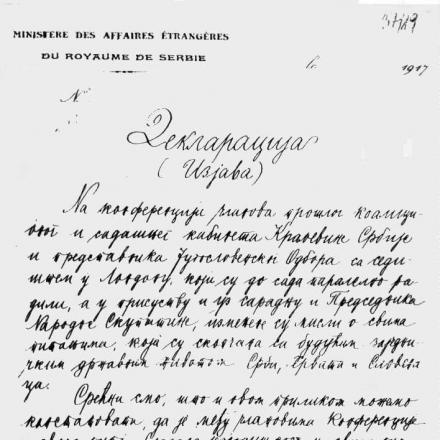 MINISTÈRE DES AFFAIRES ÉTRANGÈRES
DU ROYAUME DE SERBIE
le 1917
№
Декларација
(Изјава)
На конференцији чланова прошлог коалици-
оног и садашњег кабинета Краљевине Србије
и представника Југословенског Одбора са седи-
штем у Лондону, који су до сада паралелно ра-
дили, а у присуству и уз сарадњу и Председника
Народне Скупштине, измењене су мисли о свима
питањима, која су скопчана са будућим заједни-
чким државним животом Срба, Хрвата и Словена-
ца.
Срећни смо, што и овом приликом можемо
констатовати, да је међу члановима Конференције